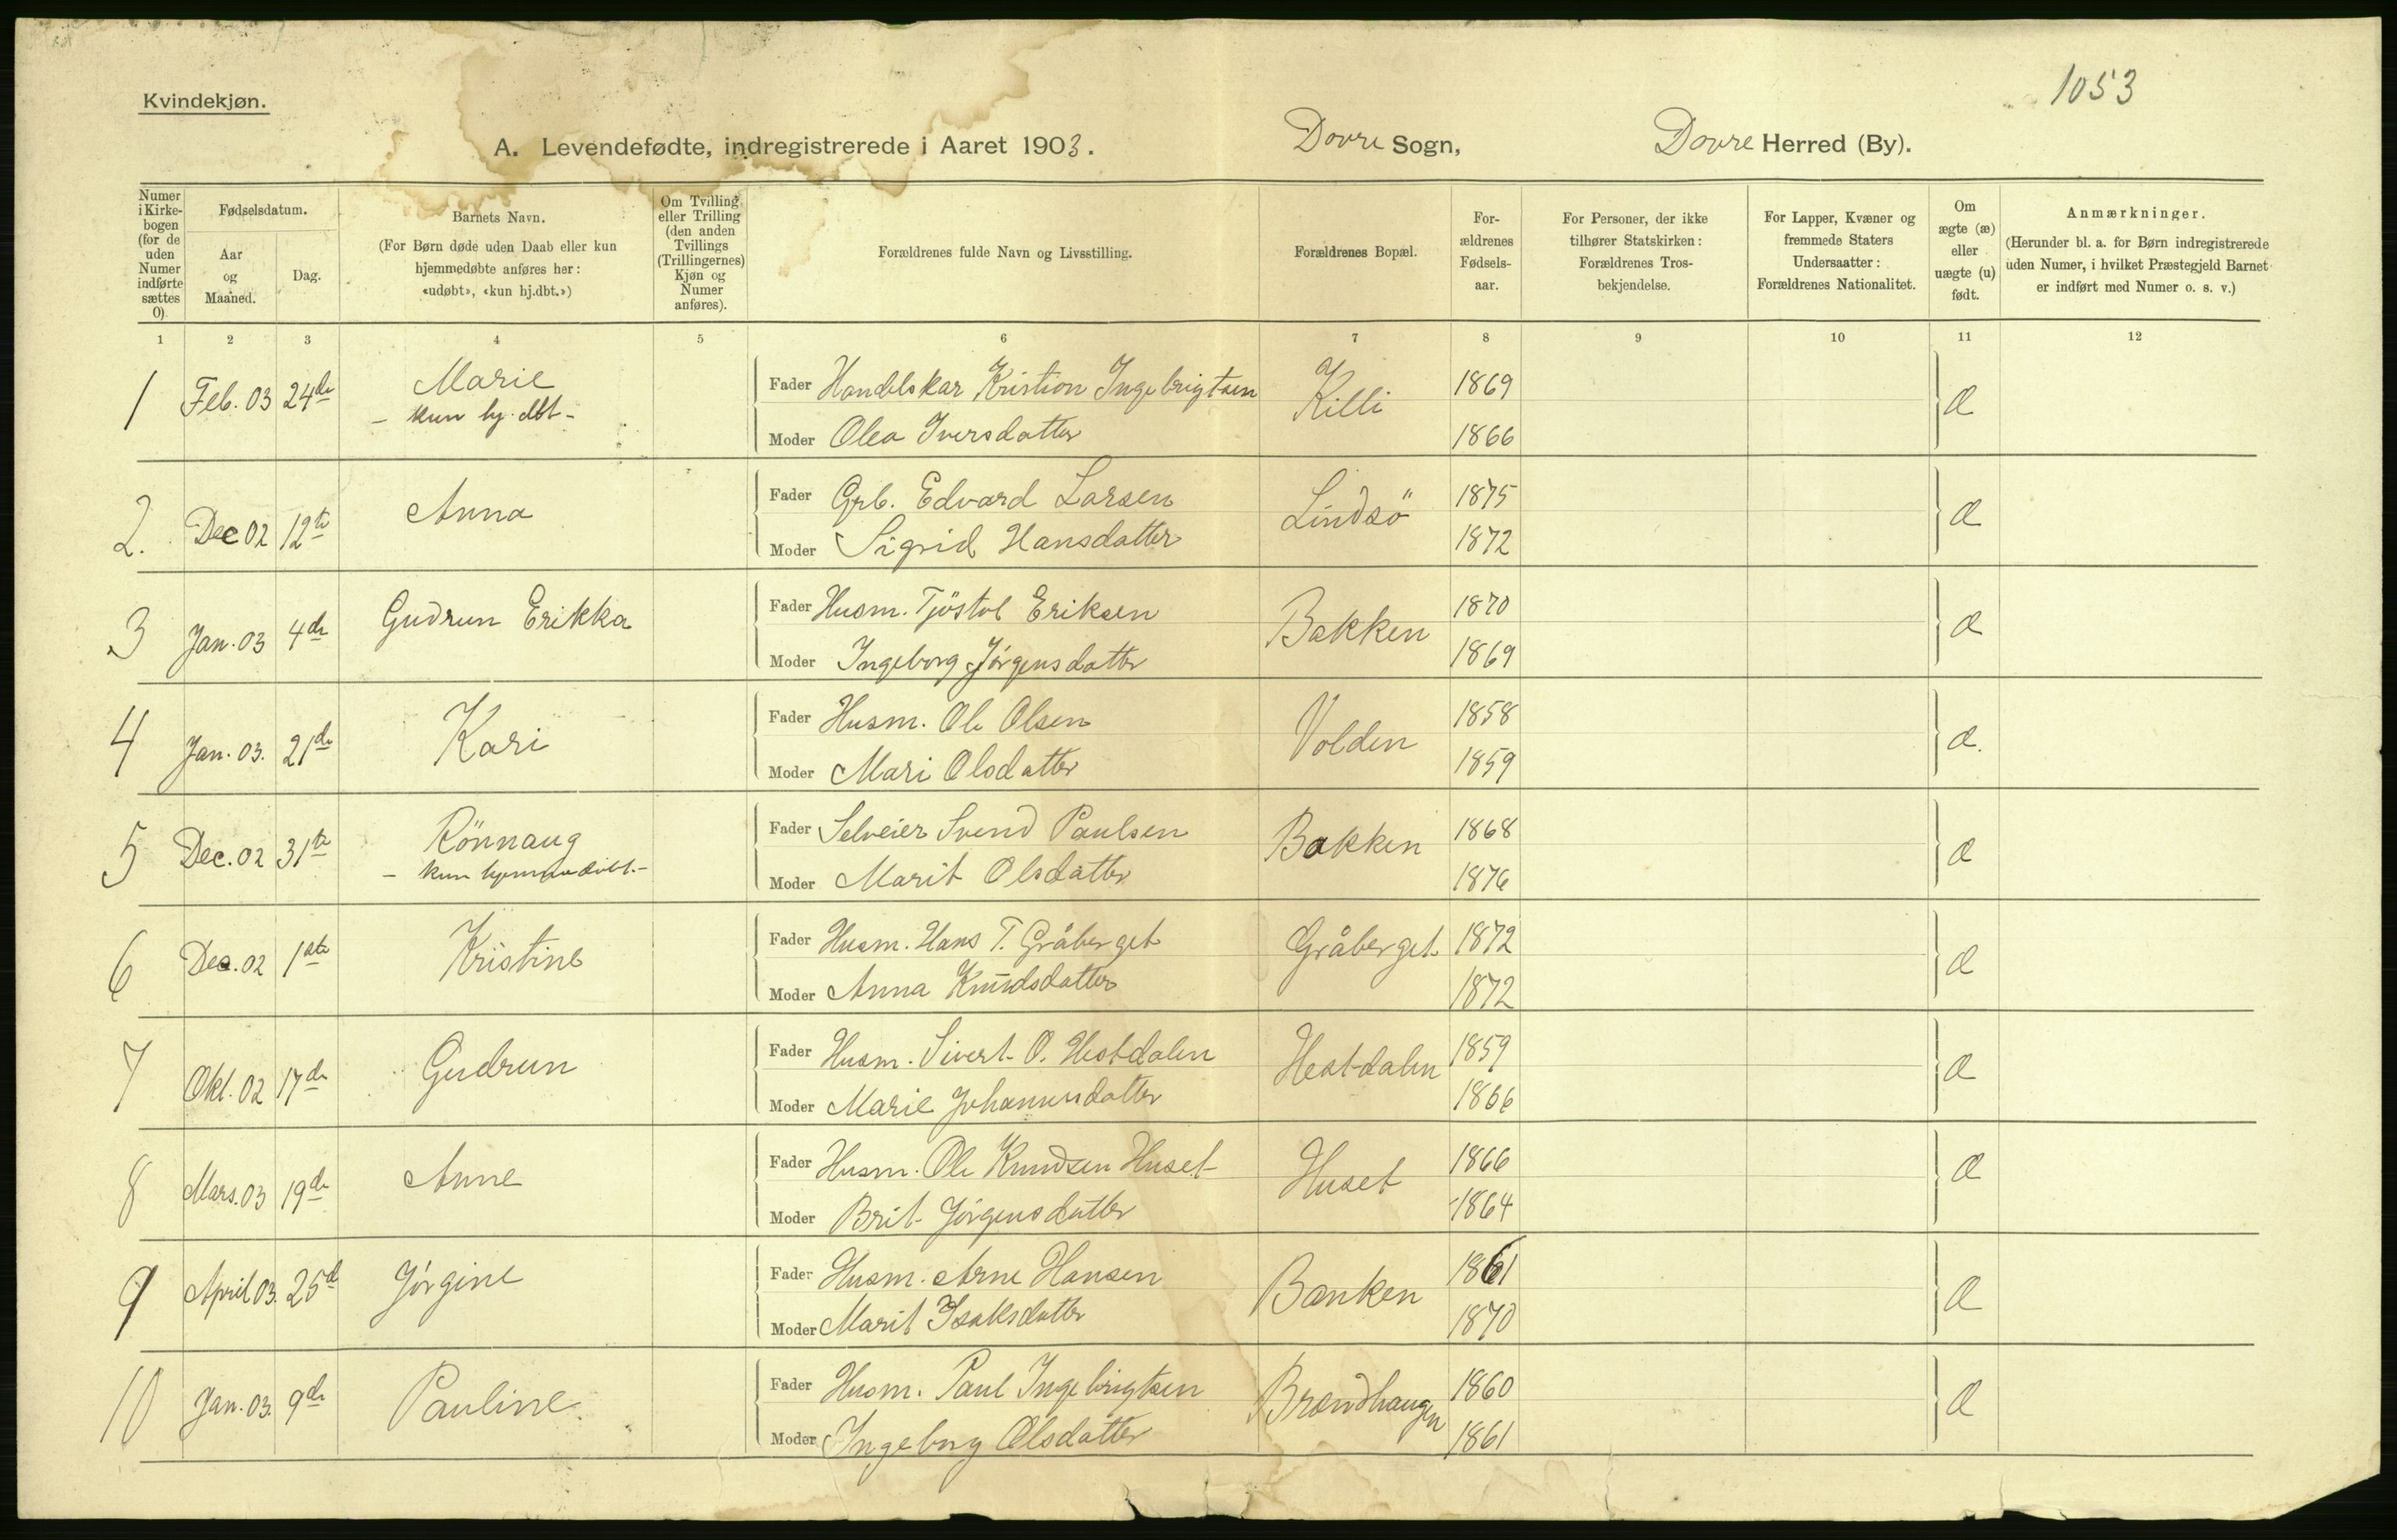 1053
Kvindekjøn.
A. Levendefødte, indregistrerede i Aaret 1903. Dovre Sogn, Dovre Herred (By).
Numer i Kirkebogen (for de uden Numer indførte sættes 0).
Fødselsdatum.
Aar og Maaned.
Dag.
Barnets Navn.
(For Børn døde uden Daab eller kun
hjemmedøbte anføres her:
«udøbt», «kun hj.dbt.»)
Om Tvilling
eller Trilling
(den anden
Tvillings
(Trillingernes)
Kjøn og
Numer
anføres).
Forældrenes fulde Navn og Livsstilling.
Forældrenes Bopæl.
For-
ældrenes
Fødsels-
aar.
For Personer, der ikke
tilhører Statskirken:
Forældrenes Tros-
bekjendelse.
For Lapper, Kvæner og
fremmede Staters
Undersaatter:
Forældrenes Nationalitet.
Om
ægte (æ)
eller
uægte (u)
født.
Anmærkninger.
(Herunder bl. a. for Børn indregistrerede
uden Numer, i hvilket Præstegjeld Barnet
er indført med Numer o. s. v.)
1 2 3 4 5 6 7 8 9 10 11 12
1 Feb. 03 24de Marie Fader Handelskar Kristian Ingebrigtsen Killi 1869 æ
- kun hj. dbt - Moder Olea Iversdatter 1866
2. Dec 02 12te Anna Fader Grb. Edvard Larsen Lindsö 1875 æ
Moder Sigrid Hansdatter 1872
3 Jan. 03 4de Gudrun Erikka Fader Husm. Tjöstol Eriksen Bakken 1870 æ
Moder Ingeborg Jörgensdatter 1869
4 Jan. 03. 21de Kari Fader Husm. Ole Olsen Volden 1858 æ.
Moder Mari Olsdatter 1859
5 Dec. 02 31te Rönnaug Fader Selveier Svend Paulsen Bakken 1868 æ
- kun hjemmedöbt. - Moder Marit Olsdatter 1876
6 Dec. 02 1ste Kristine Fader Husm. Hans T. Gråberget Gråberget 1872 æ
Moder Anna Knudsdatter 1872
7 Okt. 02 17de Gudrun Fader Husm. Sivert O. Hestdalen Hestdalen 1859 æ
Moder Marie Johannesdatter 1866
8 Mars. 03 19de Anne Fader Husm. Ole Knudsen Huset Huset 1866 æ
Moder Brit Jörgensdatter 1864
9 April 03. 25de Jörgine Fader Husm. Arne Hansen Banken 1861 æ
Moder Marit Isaksdatter 1870
10 Jan. 03. 9de Pauline. Fader Husm. Paul Ingebrigtsen Brændhaugen 1860 æ
Moder Ingeborg Olsdatter 1861